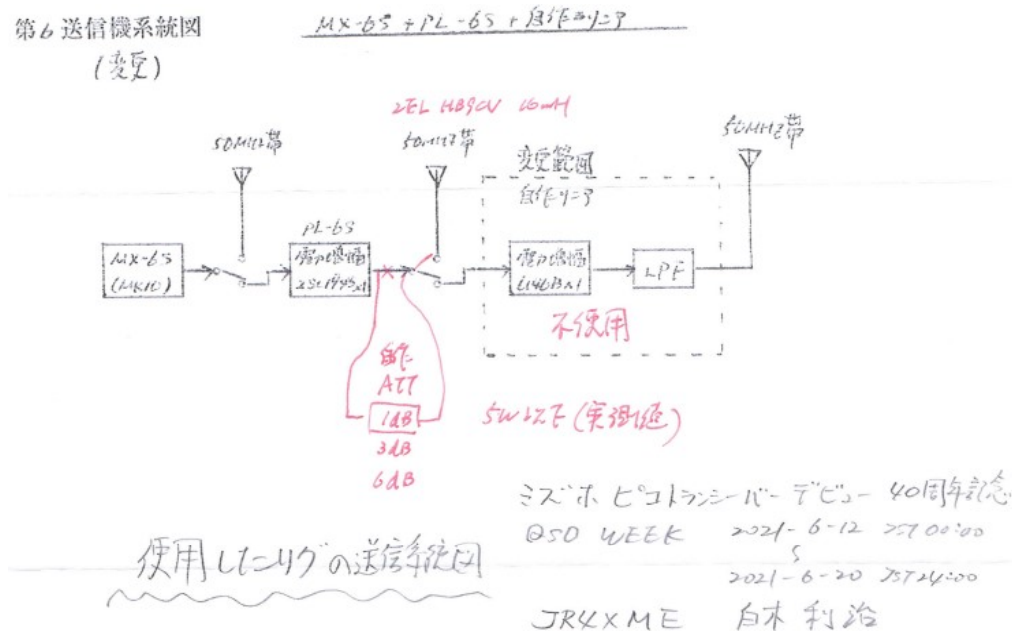 第6 送信機系統図
(変更)
MX-6S + PL-6S + 自作リニア
2EL HB9CV 10mH
50MHz帯
50MHz帯
50MHz帯
変更範囲
自作リニア
PL-6S
MX-6S
電力増幅
2SC1945x1
電力増幅
6146Bx1
LPF
不使用
自作
ATT
1dB
3dB
6dB
5W以下(実測値)
ミズホ ピコトランシーバー デビュー 40周年記念
QSO WEEK 2021-6-12 JST 00:00
2021-6-20 JST 24:00
使用したリグの送信系統図
JR4XME 白木 利治